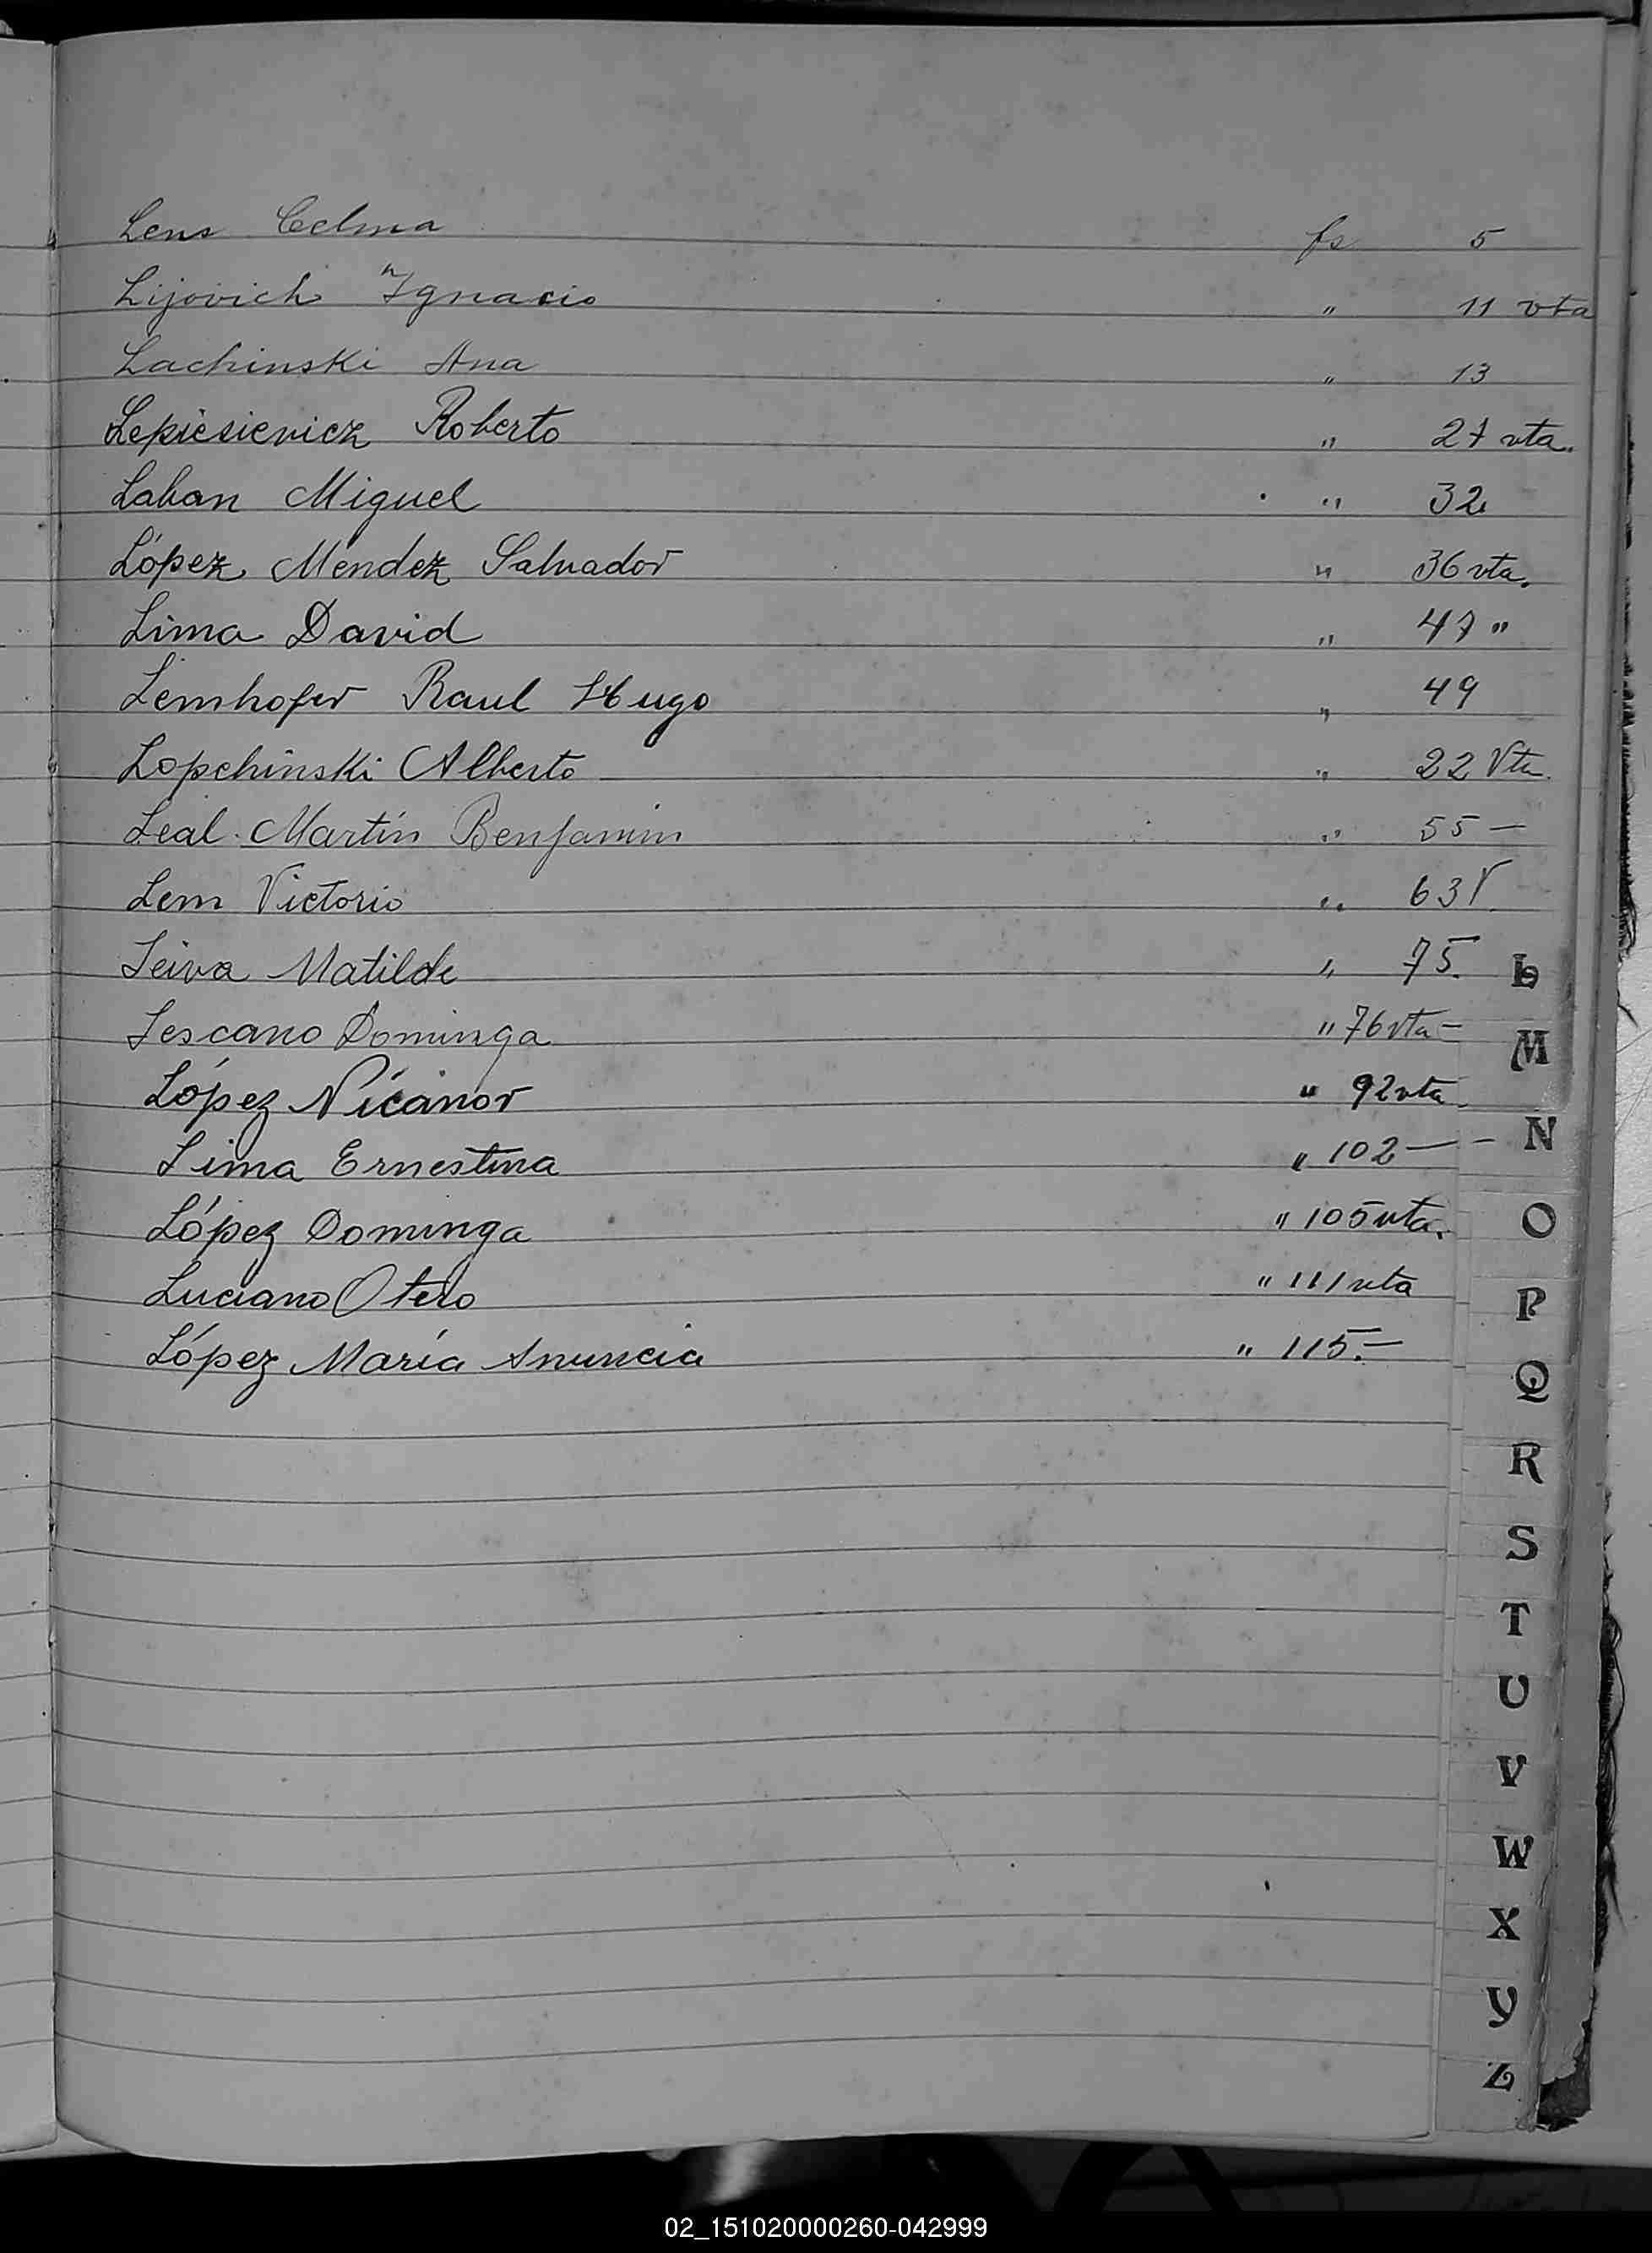 Lens Celma fs 5
Lijovich Ygnacio " 11 vta
Lachinski Ana " 13
Lepiesievicz Roberto " 27 vta.
Laban Miguel " 32
López Mendez Salvador " 36 vta.
Lima David " 47 "
Lemhofer Raul Hugo " 49
Lopchinski Alberto " 22 Vta.
Leal Martín Benjamin " 55 —
Lem Victorio " 63 V.
Leiva Matilde " 75.
Lescano Dominga " 76 vta —
López Nicanor " 92 vta
Lima Ernestina " 102 — –
López Dominga " 105 vta.
Luciano Otero " 111 vta
López María Anuncia " 115.—
L
M
N
O
P
Q
R
S
T
U
V
W
X
Y
Z
02_151020000260-042999